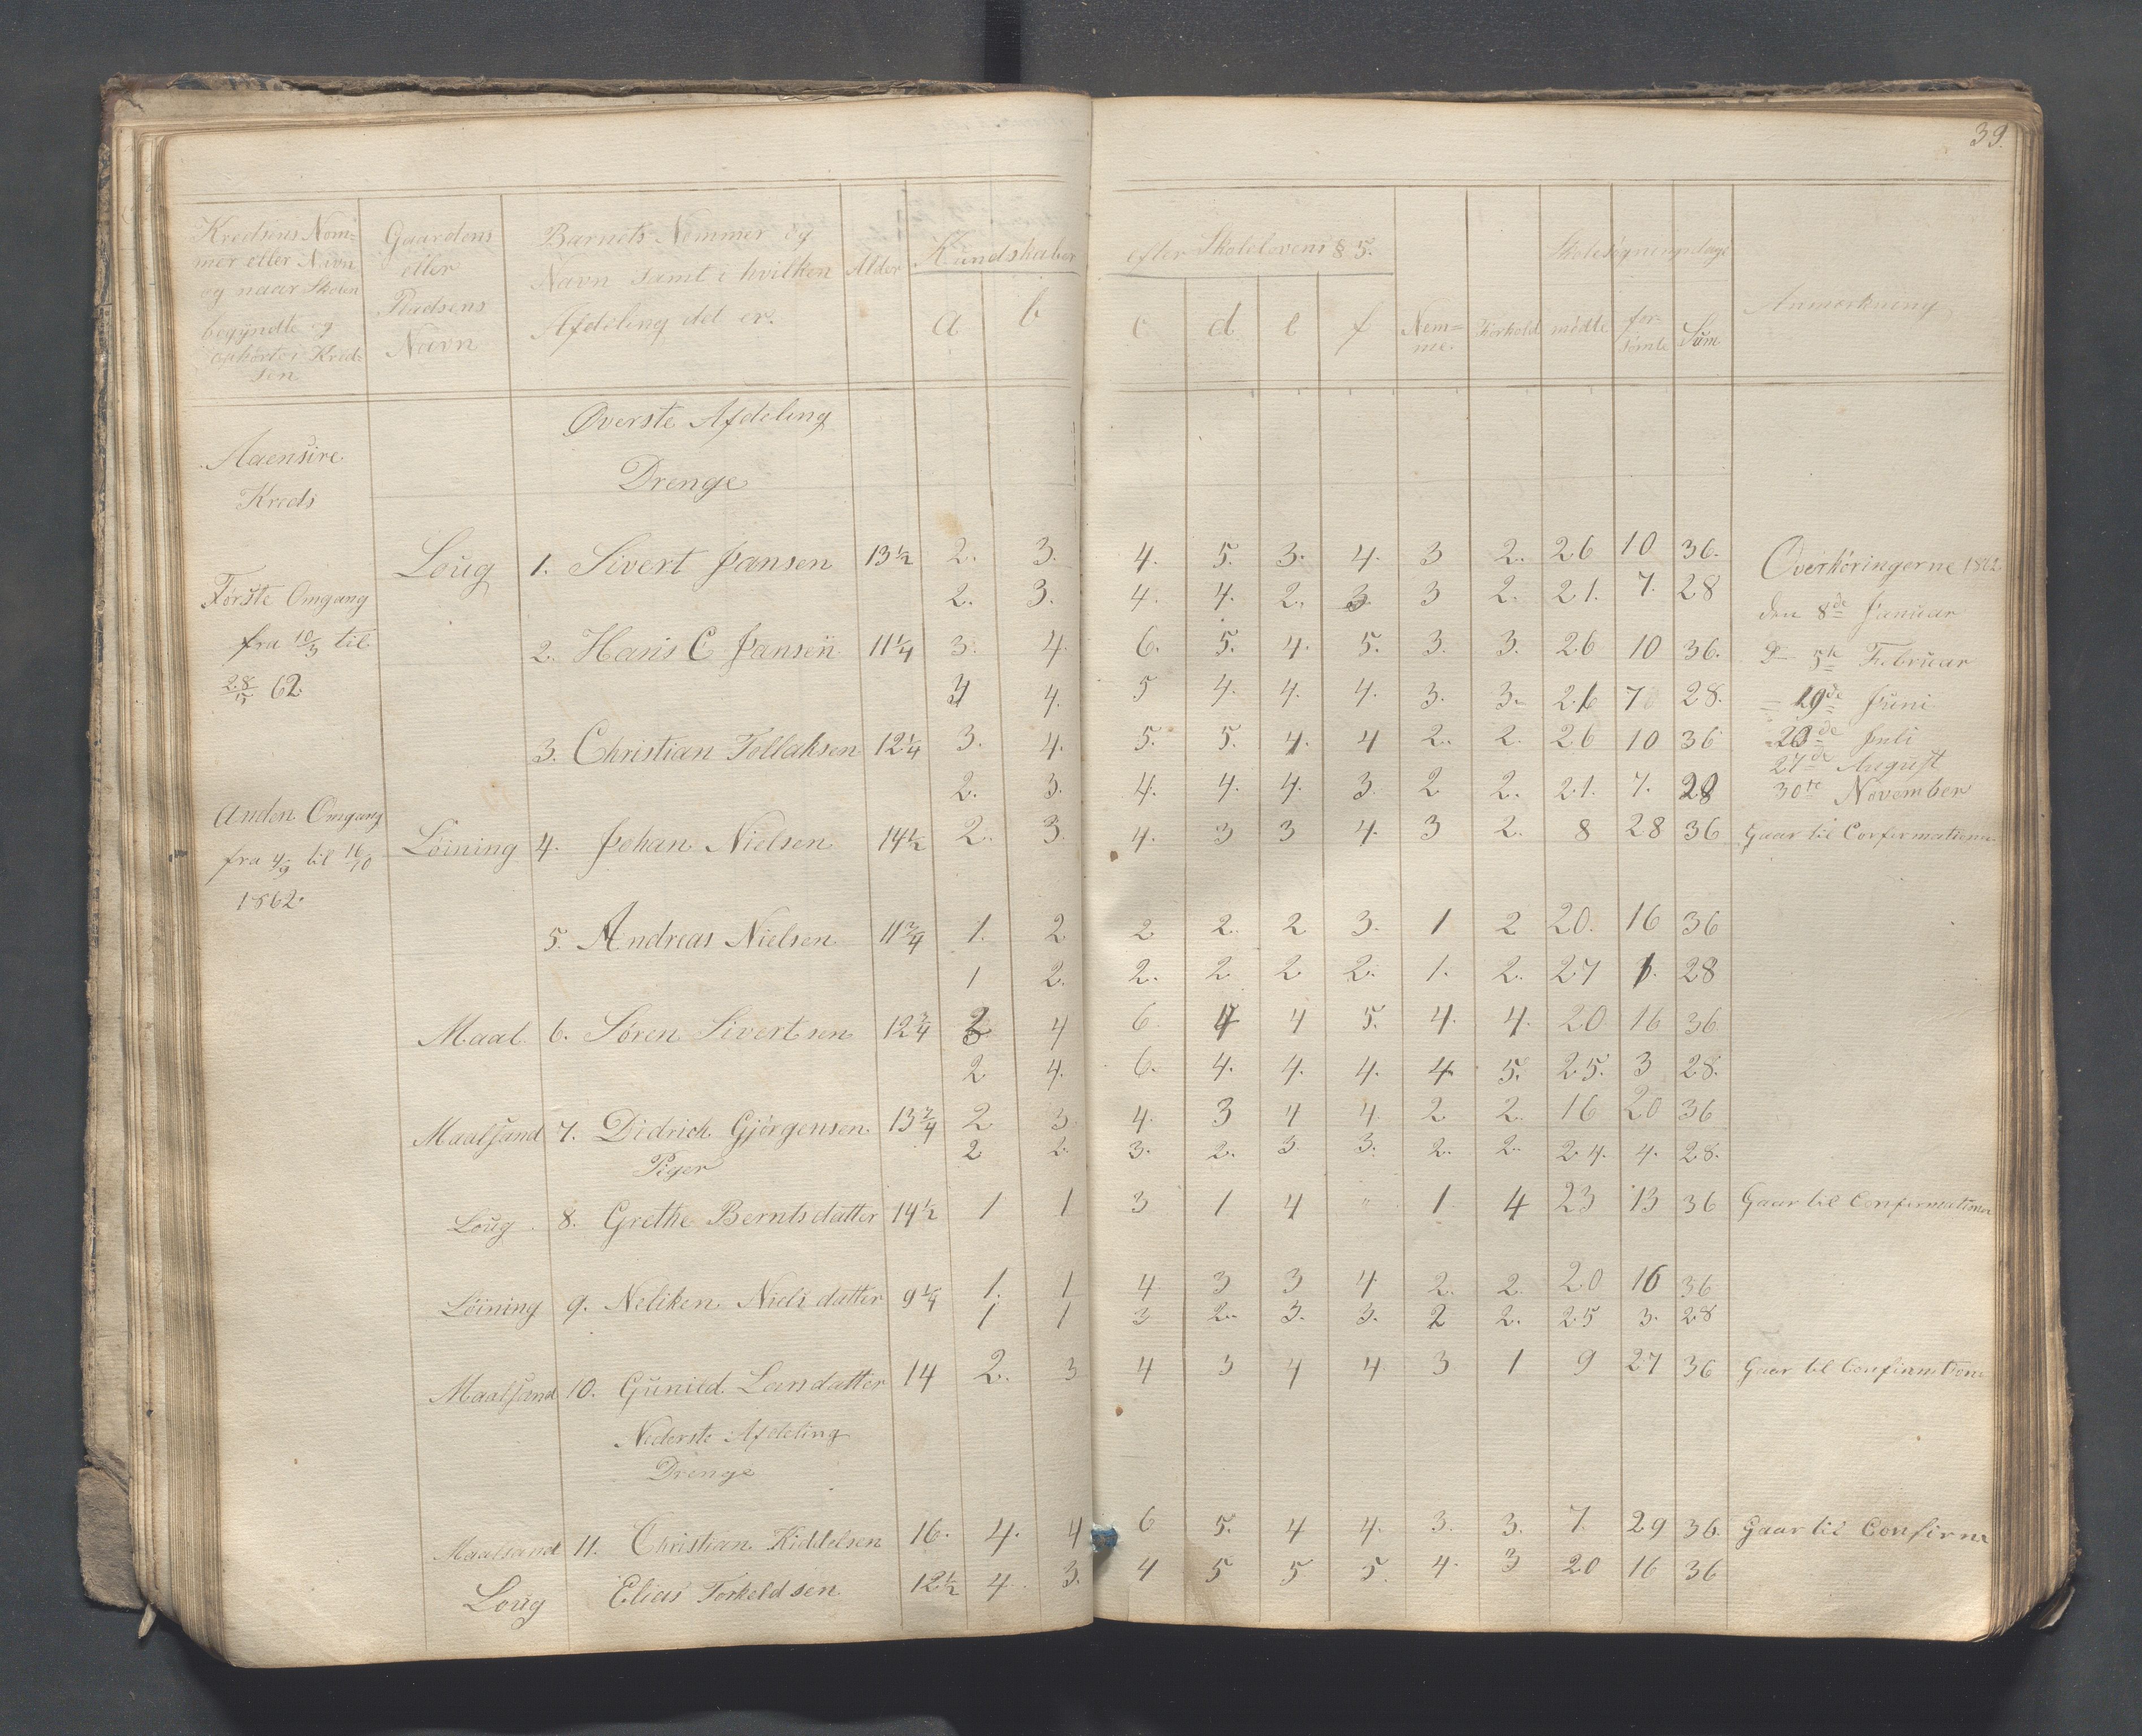 39.
Kredsens Nom=
mer eller Navn
og naar Skolen
begyndte og
ophørte i Kred=
sen
Gaardens
eller
Pladsens
Navn
Barnets Nummer og
Navn samt i hvilken
Afdeling det er.
Alder
Kundskaber
a b
efter Skoleloveni § 5.
c d e f
Nem=
me.
Forhold
Skolesøgningsdage
mødte
for-
sømte
Sum
Anmærkning
Øverste Afdeling
Drenge
Aaensire
Kreds
Første Omgang
fra 10/3 til
28/5 62.
Anden Omgang
fra 4/9 til 16/10
1862.
Loug 1. Sivert Jansen 13½ 2. 3. 4. 5. 3. 4. 3 2. 26 10 36.
2. 3. 4. 4. 2. 3. 3 2. 21. 7. 28
2. Hans C Jansen 11¼ 3. 4. 6. 5. 4. 5. 3. 3. 26 10 36.
4. 5 4. 4. 4. 3. 3. 21 7 28.
3. Christian Tollaksen 12¼ 3. 4. 5. 5. 4. 4 2. 2. 26 10 36
2. 3. 4. 4. 4. 3. 2 2. 21. 7. 28
Overhøringerne 1862.
den 8de Januar
D— 5te Februar
= 19de Juni
20de Juli
27de August
30te November
Løining 4. Johan Nielsen 14½ 2. 3. 4. 3 3 4. 3 2. 8 28 36 Gaar til Confirmationen
5. Andreas Nielsen 11¾ 1. 2 2 2. 2 3. 1 2 20. 16 36
1 2. 2. 2 2 2. 1. 2. 27 1. 28
Maal 6. Søren Sivertsen 12¾ 4 6 4 4 5. 4. 4. 20 16 36
2 4. 6. 4. 4. 4. 4. 5. 25. 3 28.
Maalsand 7. Didrich Gjørgensen 13¾ 2 3 4. 3 4 4 2 2. 16 20 36
2 2. 3. 2. 3 3. 2. 2. 24. 4. 28.
Piger
Loug 8. Grethe Berntsdatter 14½ 1 1 3 1 4 " 1 4 23 13 36 Gaar til Confirmationen
Løining 9. Neliken Nielsdatter 9¼ 1. 1 4 3 3 4 2. 2. 20 16 36
1 1 3 2. 3. 3. 2 2. 25 3. 28
Maalsand 10. Gunild Larsdatter 14 2. 3 4 3 4 4 3 1 9 27 36 Gaar til Confirmation
Nederste Afdeling
Drenge
Maalsand 11. Christian Kiddelsen 16. 4. 4 6 5. 4 4. 3. 3. 7. 29 36. Gaar til Confirm
Loug Elias Torkeldsen 12½ 4 3. 4 5 5 5. 4. 3 20 16 36